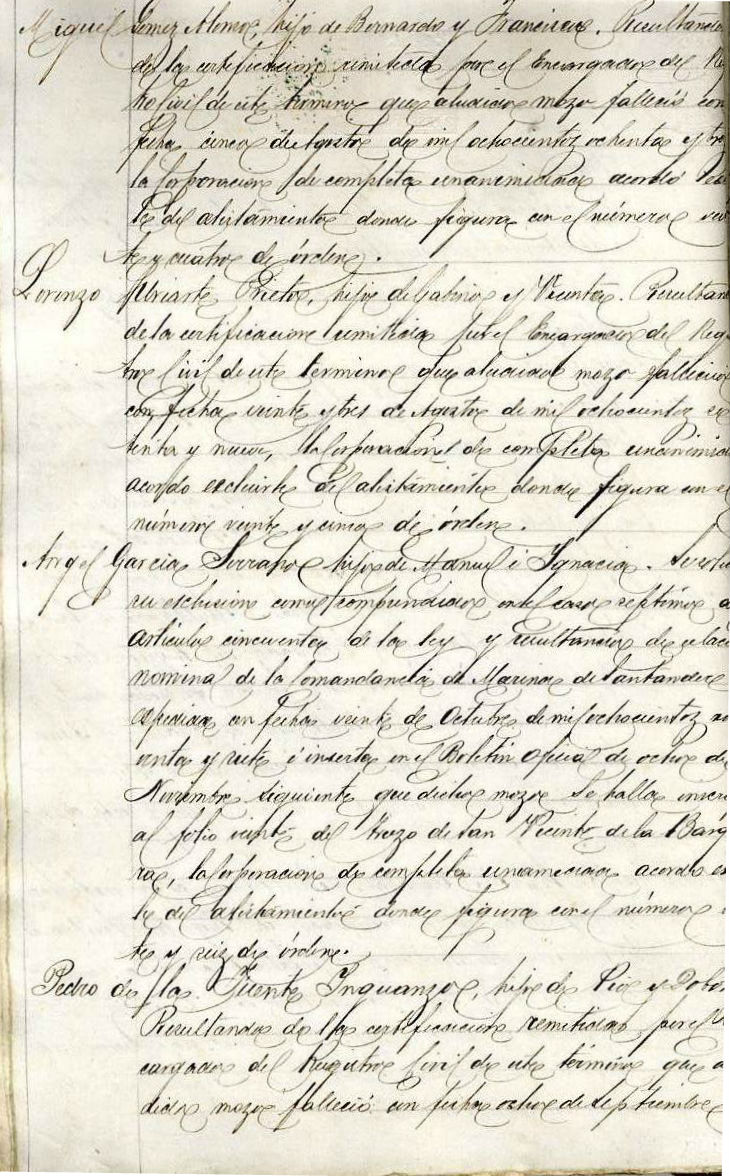 Miguel Gomez Alonso, hijo de Bernardo y Francisca. Resultando
de la certificacion remitida por el Encargado del Reg
tro Civil de este termino que aludido mozo fallecio con
fecha cinco de Agosto de mil ochocientos ochenta y tres
la Corporacion de completa unanimidad acordó
del alistamiento donde figura con el número vein
te y cuatro de órden.
Lorenzo Uriarte Prieto, hijo de Gabino y Vicenta. Resultando
de la certificacion remitida por el Encargado del Reg
tro Civil de este termino que aludido mozo fallecio
con fecha veinte y tres de Agosto de mil ochocientos se
tenta y nueve, la Corporacion de completa unanimid
acordo escluirle del alistamiento donde figura con el
número veinte y cinco de órden.
Angel Garcia Serrano hijo de Manuel é Ignacia.
su esclusion como comprendido en el caso septimo d
artículo cincuenta de la ley y resultando de relaci
nominal de la Comandancia de Marina de Santander
espedida con fecha veinte de Octubre de mil ochocientos no
venta y siete é inserta en el Boletin Oficial de ocho de
Noviembre siguiente que dicho mozo se halla inscri
al folio veinte del trozo de San Vicente de la Barq
ra, la Corporacion de completa unanimidad acordo es
le del alistamiento donde figura con el número
te y seis de órden.
Pedro de la Fuente Inguanzo, hijo de Pio y Dolor
Resultando de la certificacion remitida por el En
cargado del Registro Civil de este término que a
dido mozo falleció con fecha ocho de Septiembre